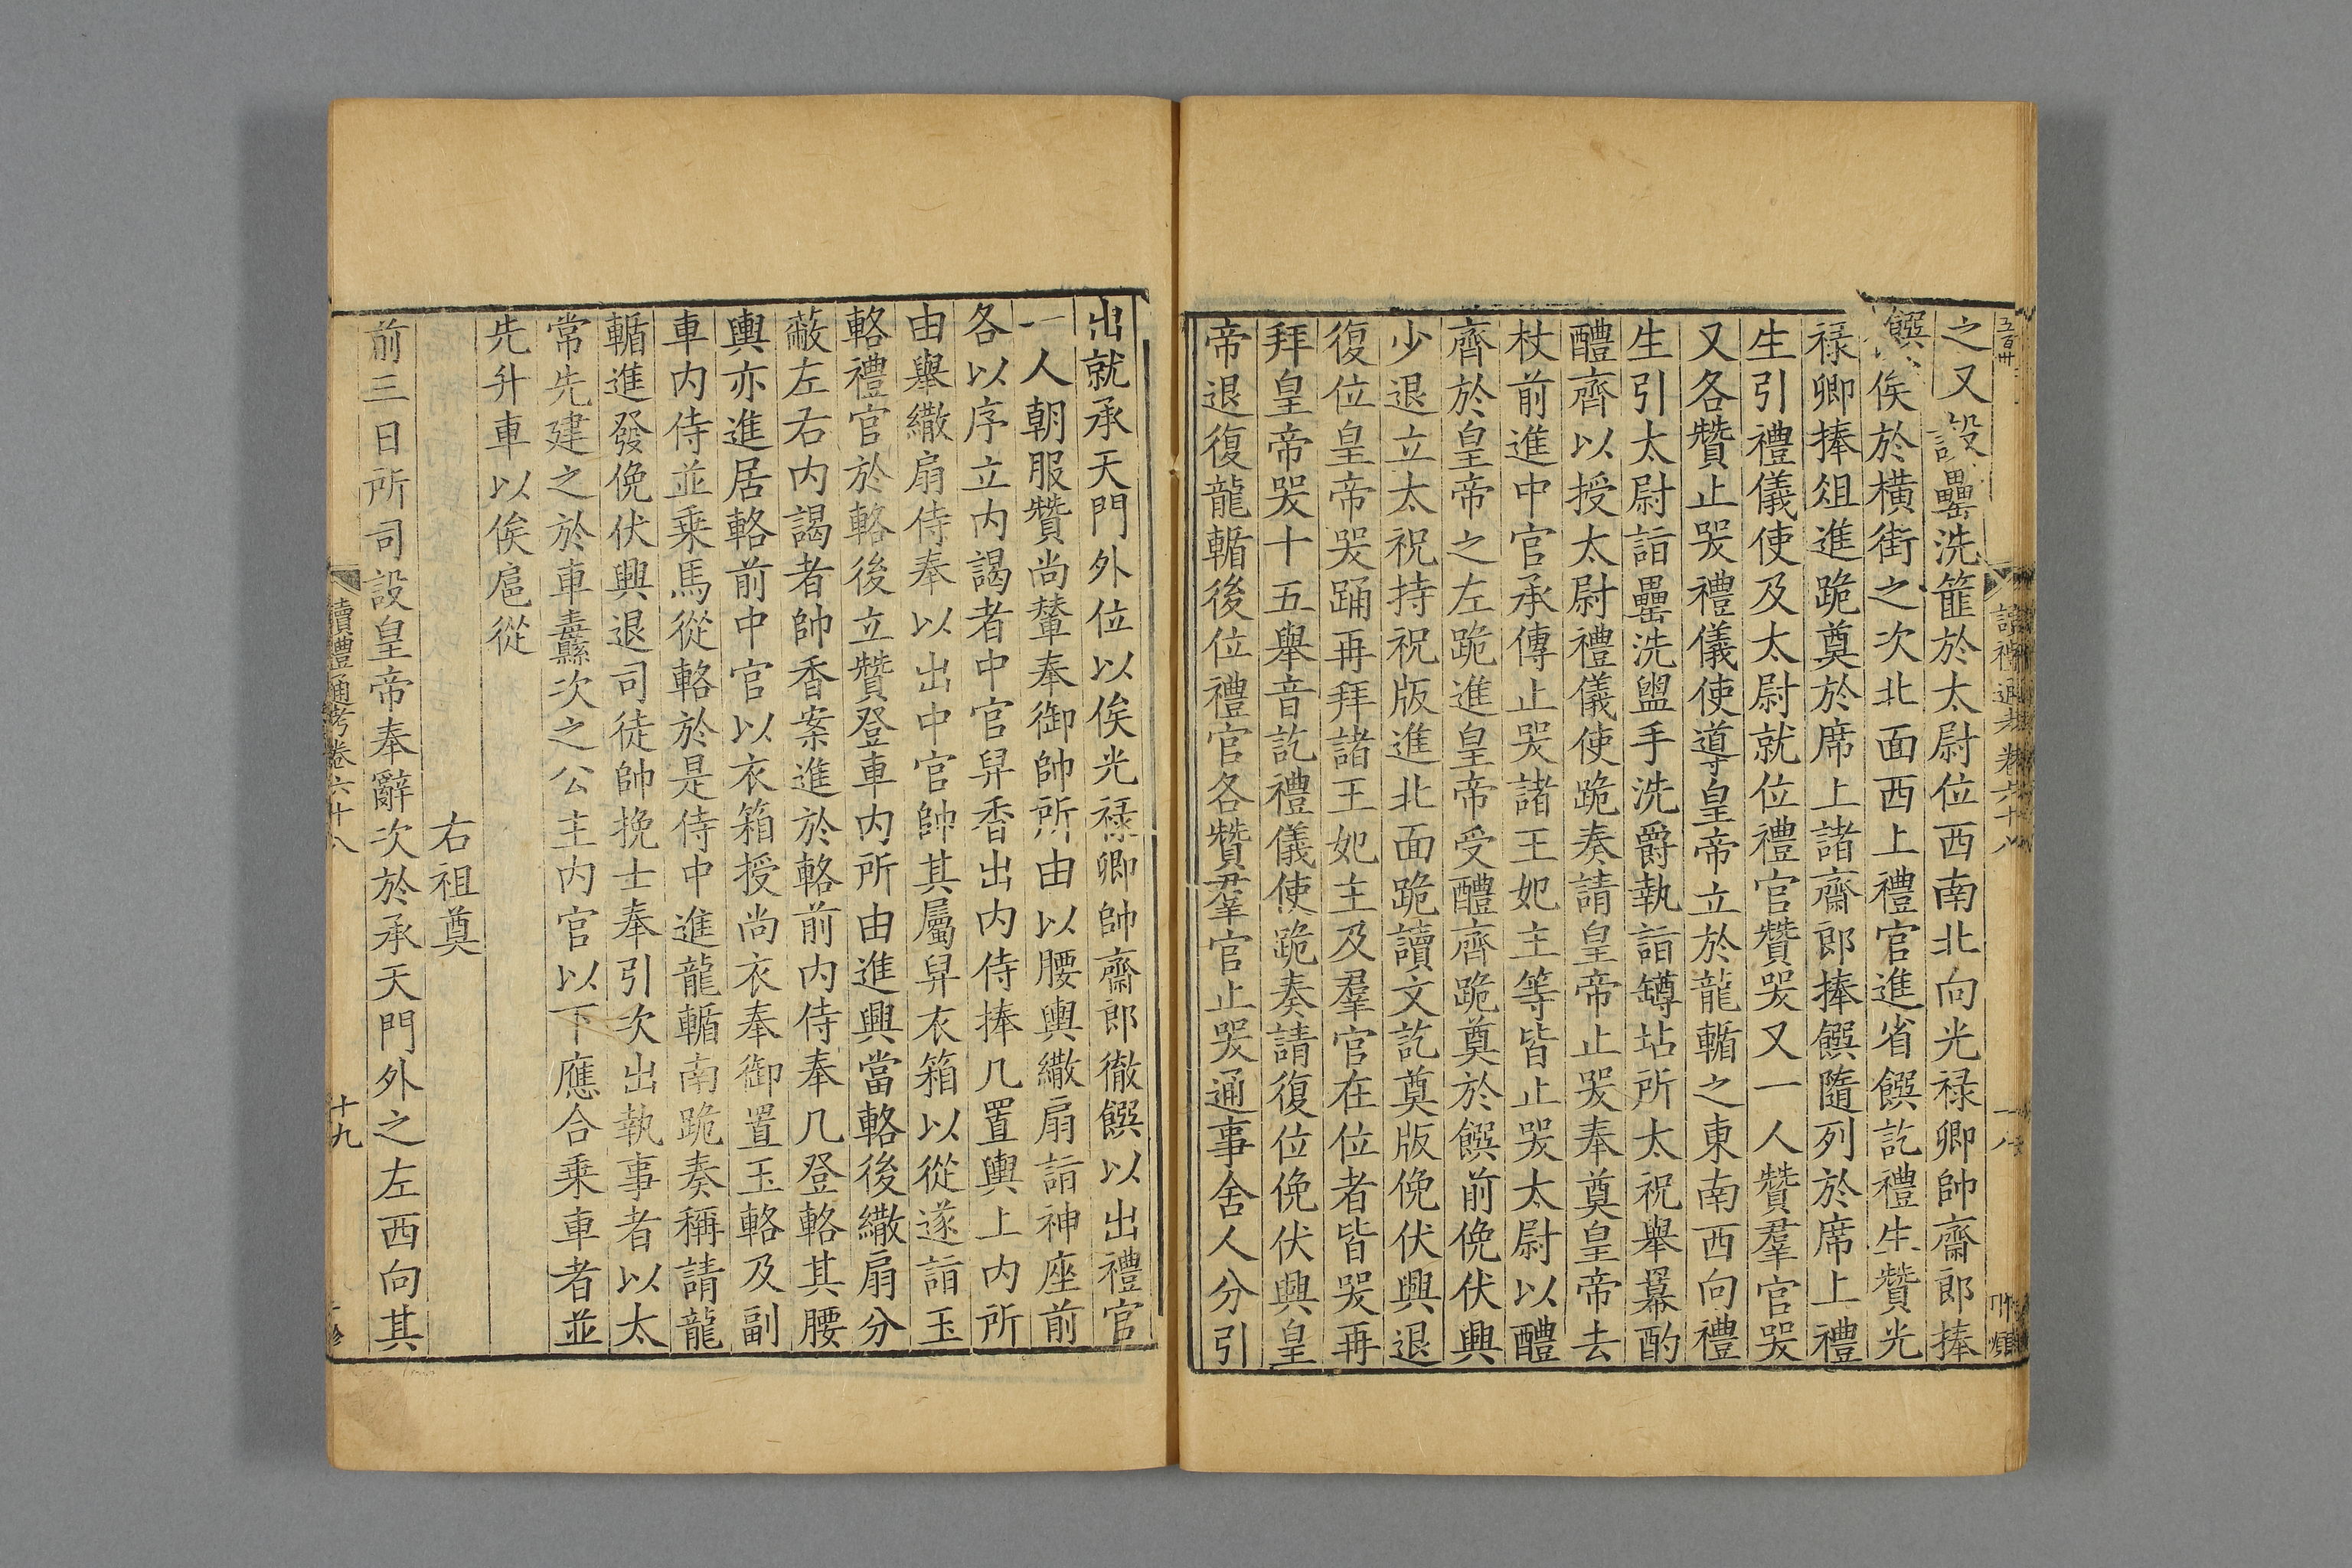 之又設罍洗篚於太尉位西南北向光禄卿帥齋郎捧
饌俟於橫街之次北面西上禮官進省饌訖禮生贊光
禄卿捧俎進跪奠於席上諸齋郎捧饌隨列於席上禮
生引禮儀使及太尉就位禮官贊哭又一人贊羣官哭
又各贊止哭禮儀使導皇帝立於龍輴之東南西向禮
生引太尉詣罍洗盥手洗爵執詣罇坫所太祝舉冪酌
醴齊以授太尉禮儀使跪奏請皇帝止哭奉奠皇帝去
杖前進中官承傳止哭諸王妃主等皆止哭太尉以醴
齊於皇帝之左跪進皇帝受醴齊跪奠於饌前俛伏興
少退立太祝持祝版進北面跪讀文訖奠版俛伏興退
復位皇帝哭踊再拜諸王妃主及羣官在位者皆哭再
拜皇帝哭十五舉音訖禮儀使跪奏請復位俛伏興皇
帝退復龍輴後位禮官各贊羣官止哭通事舍人分引
出就承天門外位以俟光禄卿帥齋郎徹饌以出禮官
一人朝服贊尚輦奉御帥所由以腰輿繖扇詣神座前
各以序立内謁者中官舁香出内侍捧几置輿上内所
由舉繖扇侍奉以出中官帥其屬舁衣箱以從遂詣玉
輅禮官於輅後立贊登車内所由進興當輅後繖扇分
蔽左右内謁者帥香案進於輅前内侍奉几登輅其腰
輿亦進居輅前中官以衣箱授尚衣奉御置玉輅及副
車内侍並乗馬從輅於是侍中進龍輴南跪奏稱請龍
輴進發俛伏興退司徒帥挽士奉引次出執事者以太
常先建之於車纛次之公主内官以下應合乗車者並
先升車以俟扈從
右祖奠
前三日所司設皇帝奉辭次於承天門外之左西向其
讀禮通考卷六十八
十九